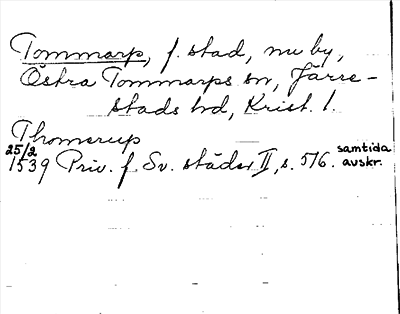 Tommarp, f. stad, nu by,
Östra Tommarps sn, Järre-
stads hd, Krist. l.
Thomerup
25/2
1539 Priv. f. Sv. städer II, s. 576. samtida avskr.